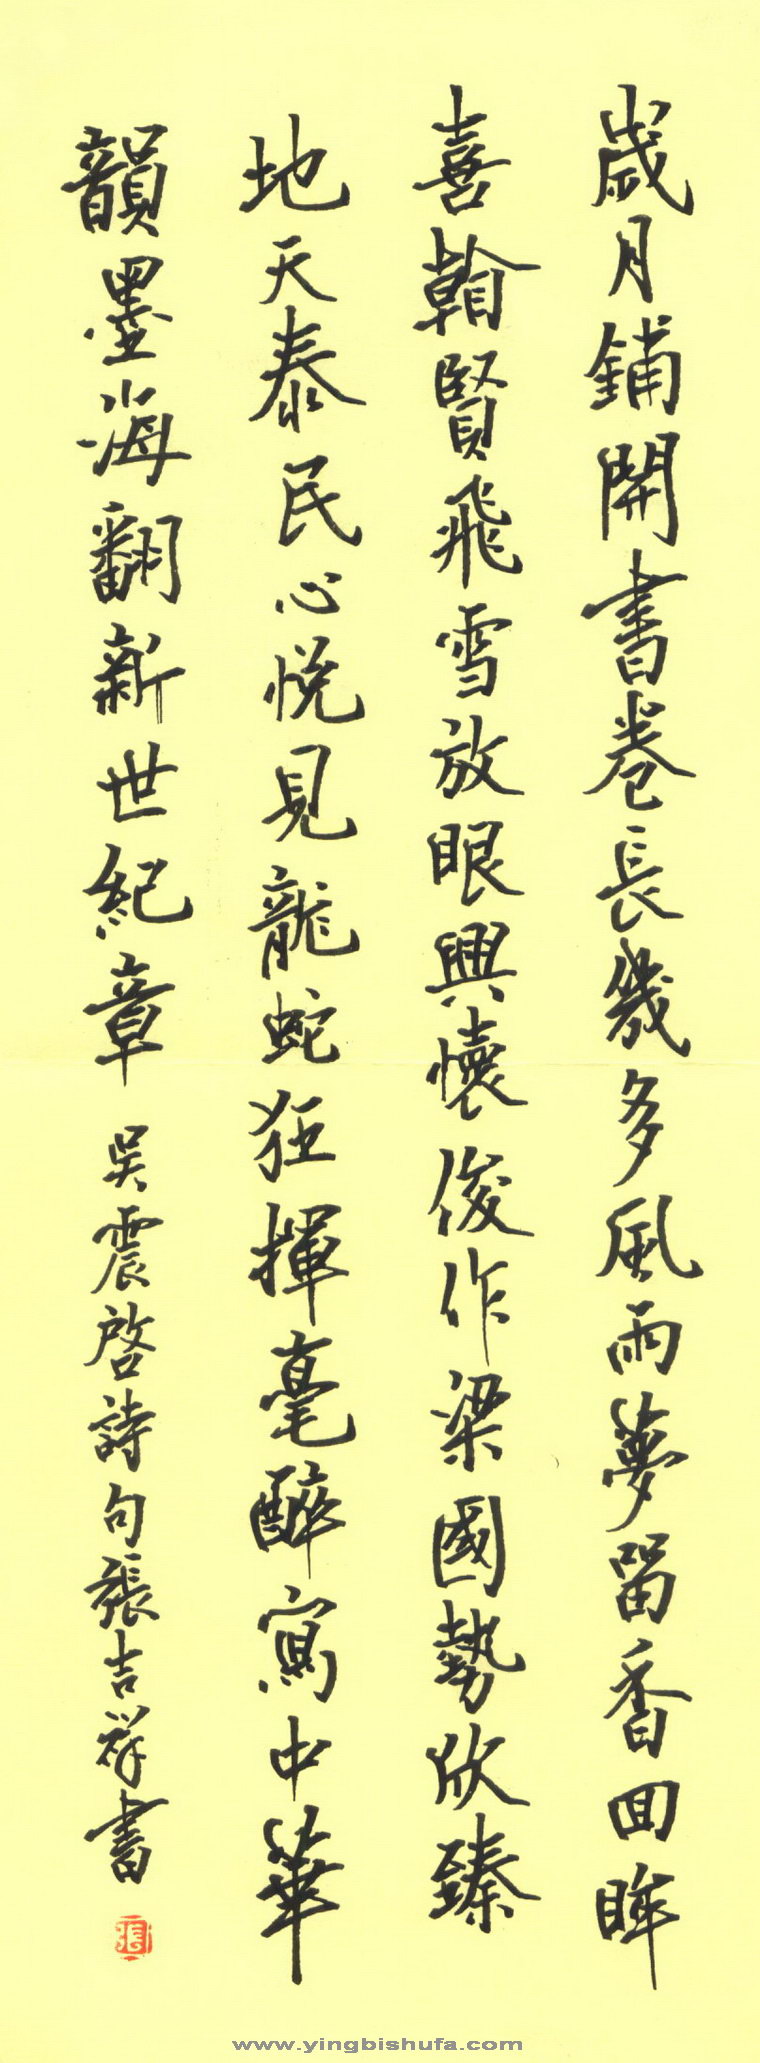 歲月鋪開書卷長幾多風雨夢留香回眸
喜翰賢飛雪放眼興懷俊作梁國勢欣臻
地天泰民心悅見龍蛇狂揮毫醉寫中華
韻墨海翻新世紀章 吳震啓詩句張吉祥書
www.yingbishufa.com